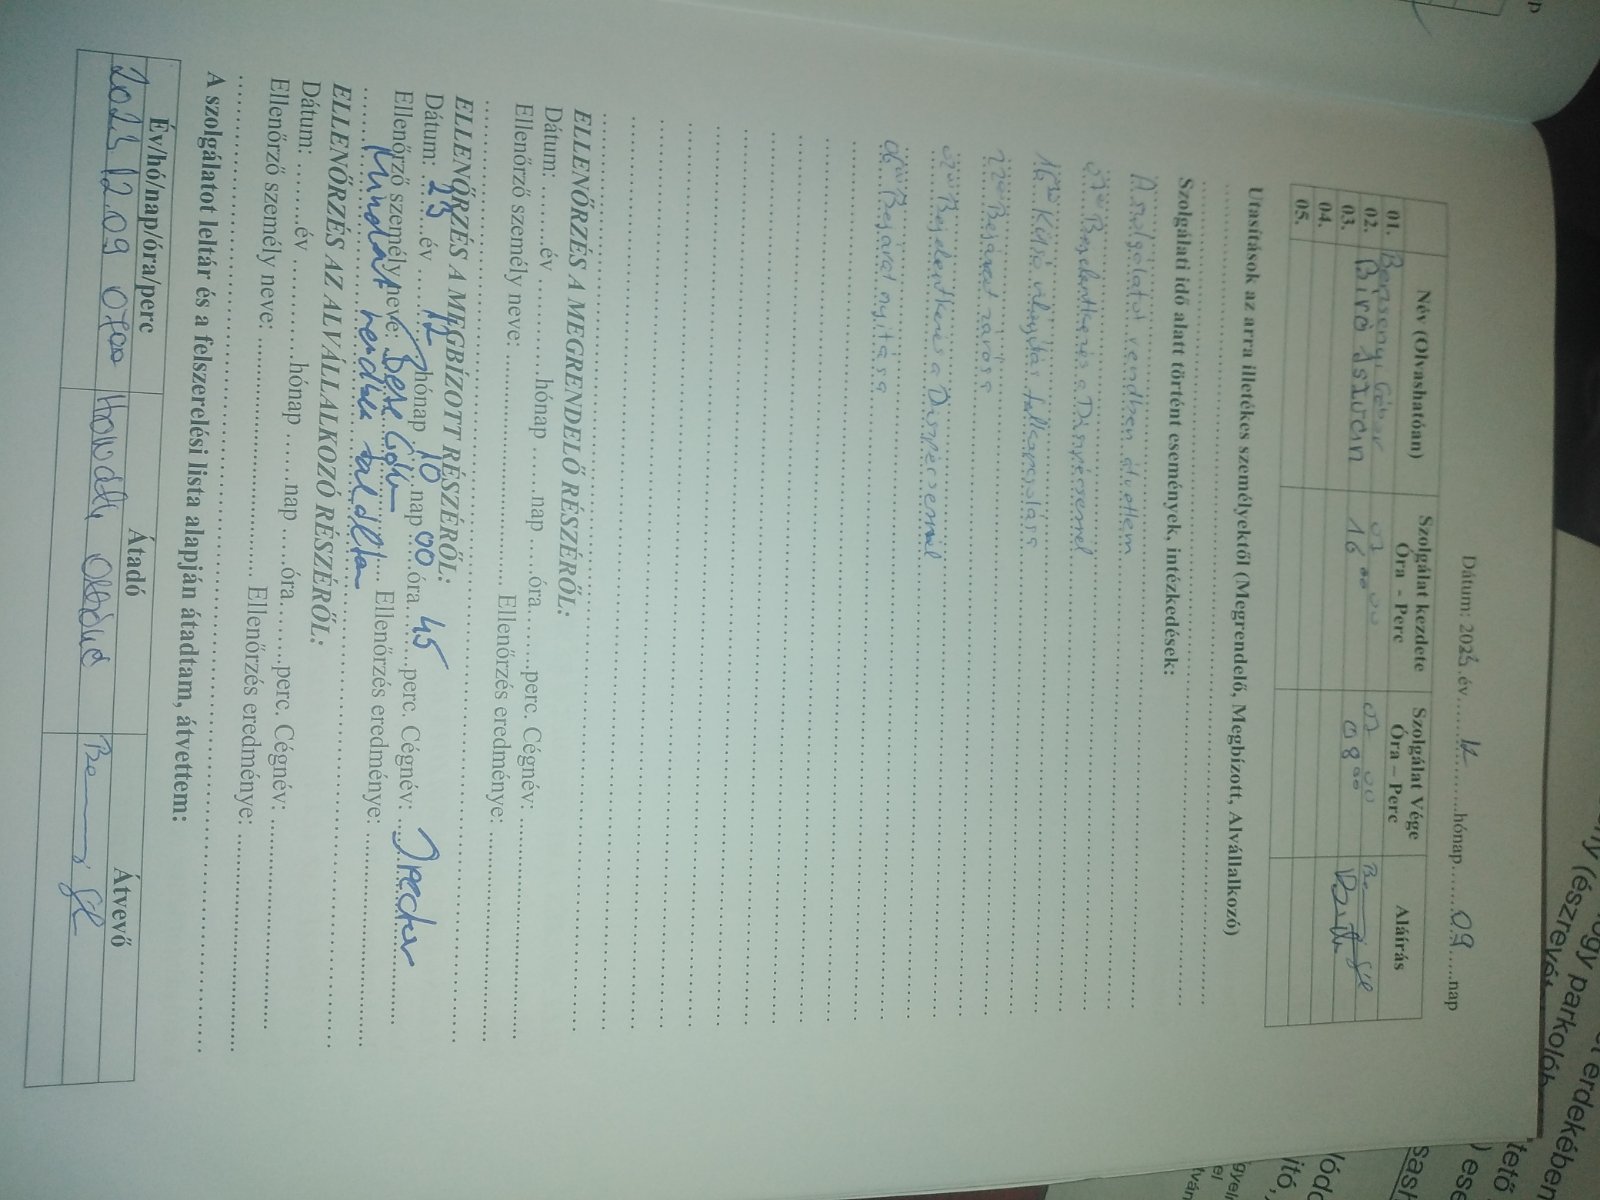 Dátum: 2023.év ........12...........hónap.......09......nap
Név (Olvashatóan) Szolgálat kezdete Óra - Perc Szolgálat Vége Óra – Perc Aláírás
01. Gábor 07 00 07 00
02. Bíró István 16 00 08 00
03.
04.
05.
Utasítások az arra illetékes személyektől (Megrendelő, Megbízott, Alvállalkozó)
Szolgálati idő alatt történt események, intézkedések:
A szolgálatot rendben átvettem
07 00 Bejelentkezés a Diszpécsernél
16 30 Külső világítás felkapcsolása
22 00 Bejárat zárása
Bejelentkezés a Diszpécsernél
06 00 Bejárat nyitása
ELLENŐRZÉS A MEGRENDELŐ RÉSZÉRŐL:
Dátum: .........év ..............hónap ......nap ....óra.......perc. Cégnév: ..............................
Ellenőrző személy neve: .................................... Ellenőrzés eredménye: ..............................
ELLENŐRZÉS A MEGBÍZOTT RÉSZÉRŐL:
Dátum: ...23...év ....12...hónap 10 nap 00 óra 45 perc. Cégnév:
Ellenőrző személy neve: Ellenőrzés eredménye: ..............................
Mindent rendben találtam
ELLENŐRZÉS AZ ALVÁLLALKOZÓ RÉSZÉRŐL:
Dátum: .........év ..............hónap ......nap ....óra.......perc. Cégnév: ..............................
Ellenőrző személy neve: .................................... Ellenőrzés eredménye: ..............................
A szolgálatot leltár és a felszerelési lista alapján átadtam, átvettem:
Év/hó/nap/óra/perc Átadó Átvevő
2023 12.09 07 00